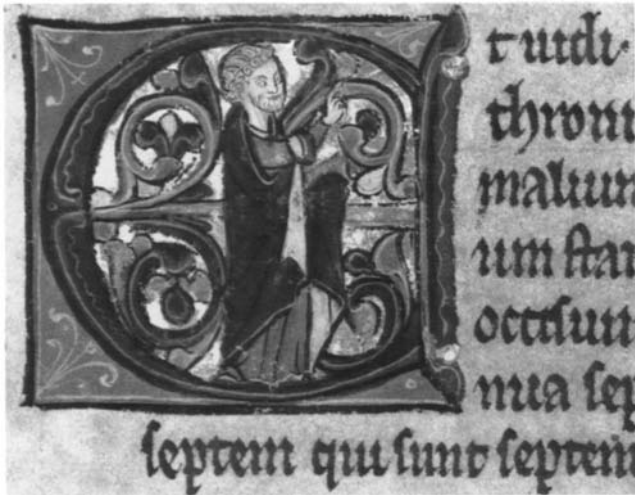 Et uidi
thron
malium
um stan
occisum
nua sep
septem qui sunt septem